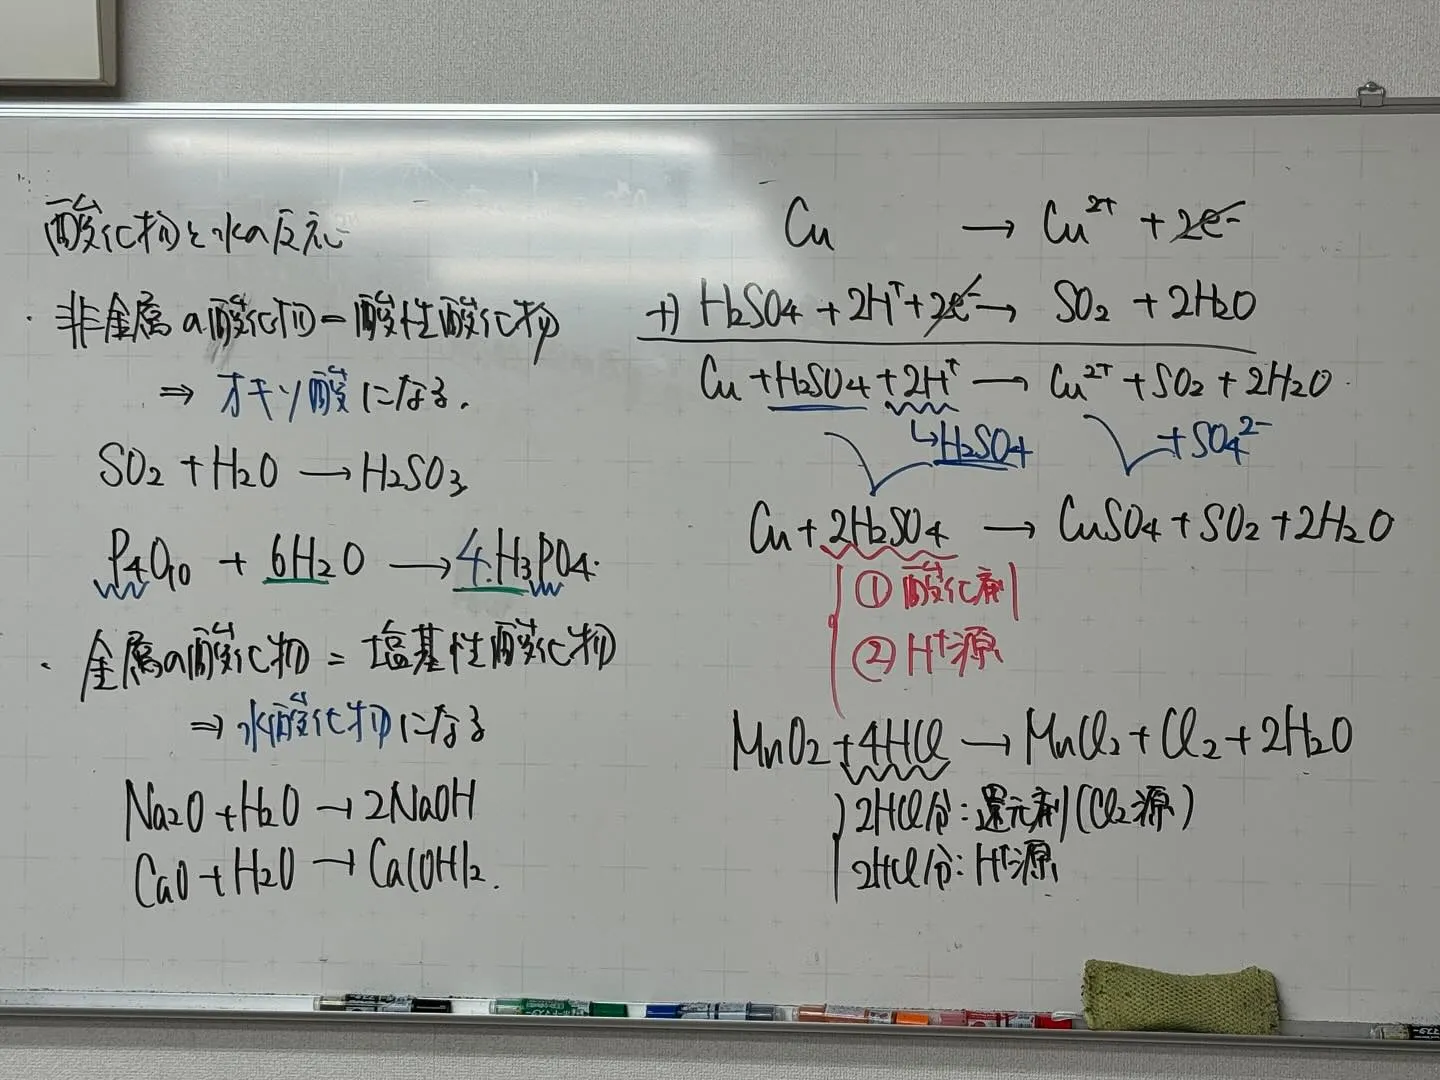 酸化物と水の反応
・非金属の酸化物=酸性酸化物
⇒ オキソ酸になる.
SO₂ + H₂O → H₂SO₃
P₄O₁₀ + 6H₂O → 4H₃PO₄.
・金属の酸化物 = 塩基性酸化物
⇒ 水酸化物になる
Na₂O + H₂O → 2NaOH
CaO + H₂O → Ca(OH)₂.
Cu → Cu²⁺ + 2e⁻
+) H₂SO₄ + 2H⁺ + 2e⁻ → SO₂ + 2H₂O
Cu + H₂SO₄ + 2H⁺ → Cu²⁺ + SO₂ + 2H₂O
↳ H₂SO₄ + SO₄²⁻
Cu + 2H₂SO₄ → CuSO₄ + SO₂ + 2H₂O
① 酸化剤
② H⁺源
MnO₂ + 4HCl → MnCl₂ + Cl₂ + 2H₂O
2HCl分:還元剤(Cl₂源)
2HCl分:H⁺源